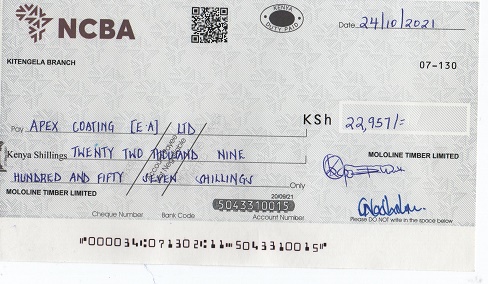 NCBA
KENYA
DUTY PAID
Date 24/10/2021
KITENGELA BRANCH
07-130
Pay APEX COATING [E·A] LTD
KSh 22,957/=
Kenya Shillings TWENTY TWO THOUSAND NINE
MOLOLINE TIMBER LIMITED
HUNDRED AND FIFTY SEVEN SHILLINGS Only
MOLOLINE TIMBER LIMITED
20/09/21
5043310015
Cheque Number Bank Code Account Number
Please DO NOT write in the space below
"000034:071302:11" 5043310015"